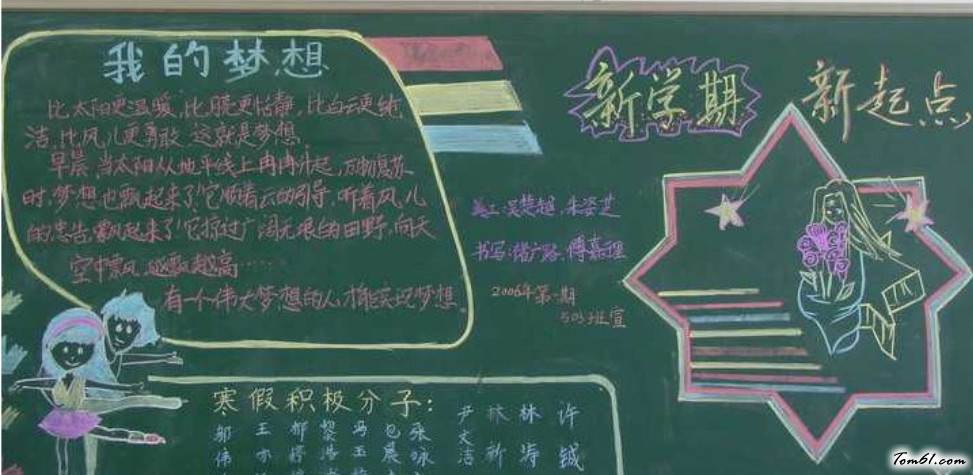 我的梦想
比太阳更温暖,比月亮更恬静,比白云更纯
洁,比风儿更勇敢,这就是梦想.
早晨,当太阳从地平线上冉冉升起,万物复苏
时,梦想也飘起来了!它顺着云的引导,听着风儿
的忠告,飘起来了!它掠过广阔无垠的田野,向天
空中飘,越飘越高……
有一个伟大梦想的人,才能实现梦想.
新学期 新起点
美工:吴楚越、朱姿芝
书写:褚广路、傅嘉理
2006年第一期
503班宣
寒假积极分子:
邹 王 郁 黎 冯 包 张 尹 林 林 许
伟 亦 婷 浩 玉 晨 咏 文 新 涛 铖
洁
Tom61.com